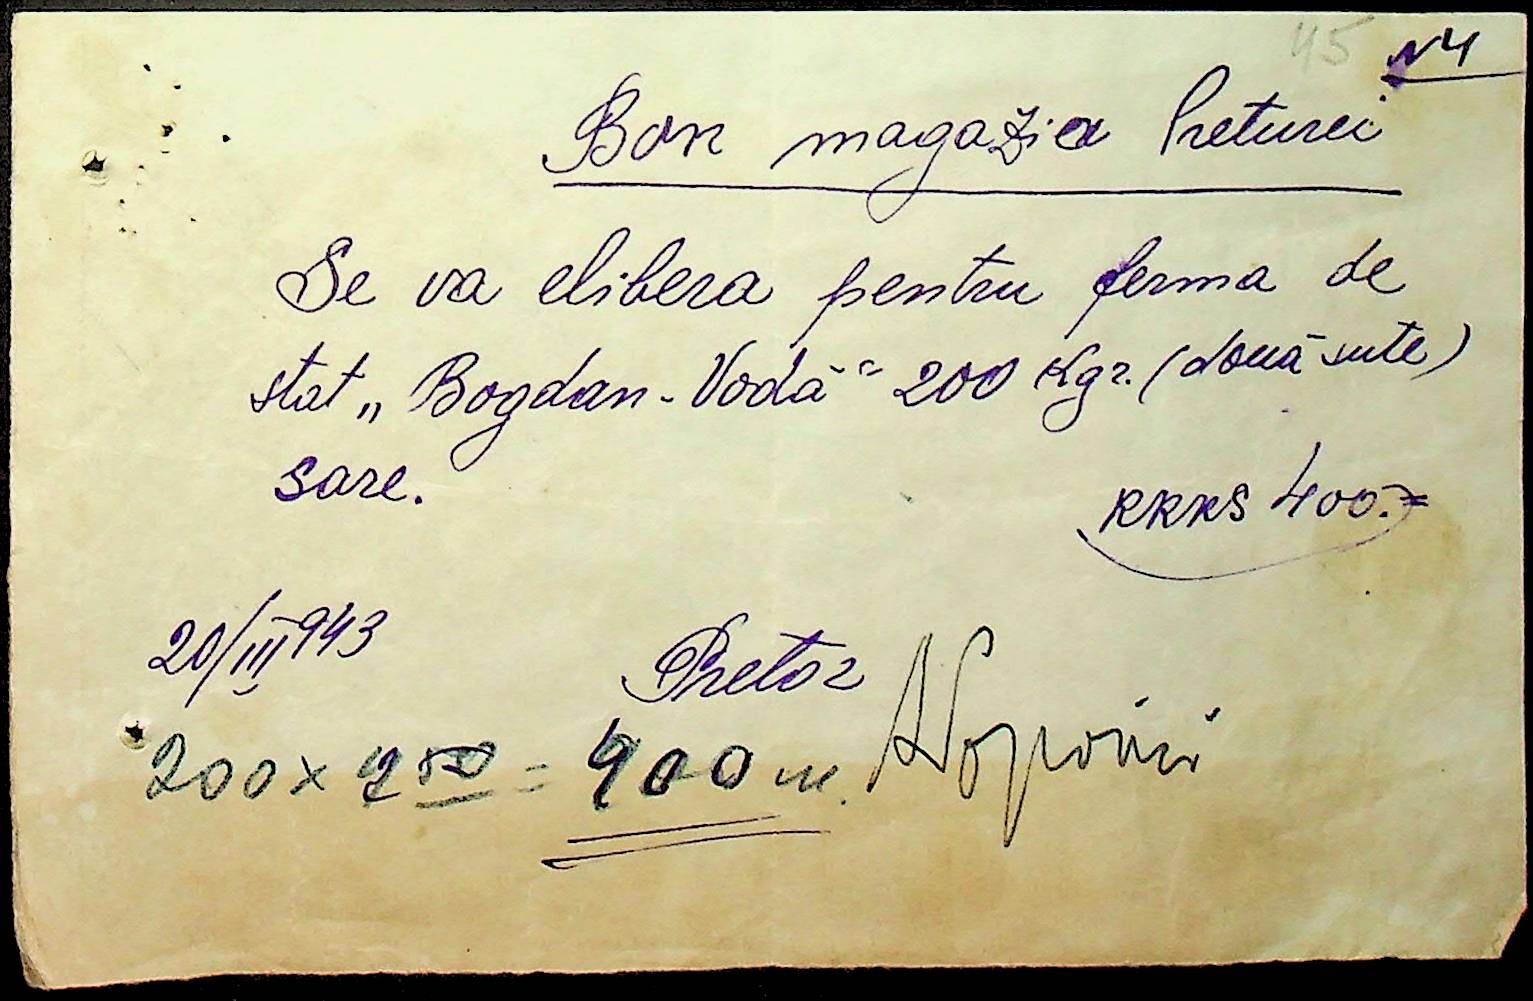 45 N 4
Bon magazia Preturei
Se va elibera pentru ferma de
stat „Bogdan-Vodă" 200 Kgr. (două sute)
sare.
RKKS 400.=
20/III 943
Pretor
200 x 2 50 = 400 m.